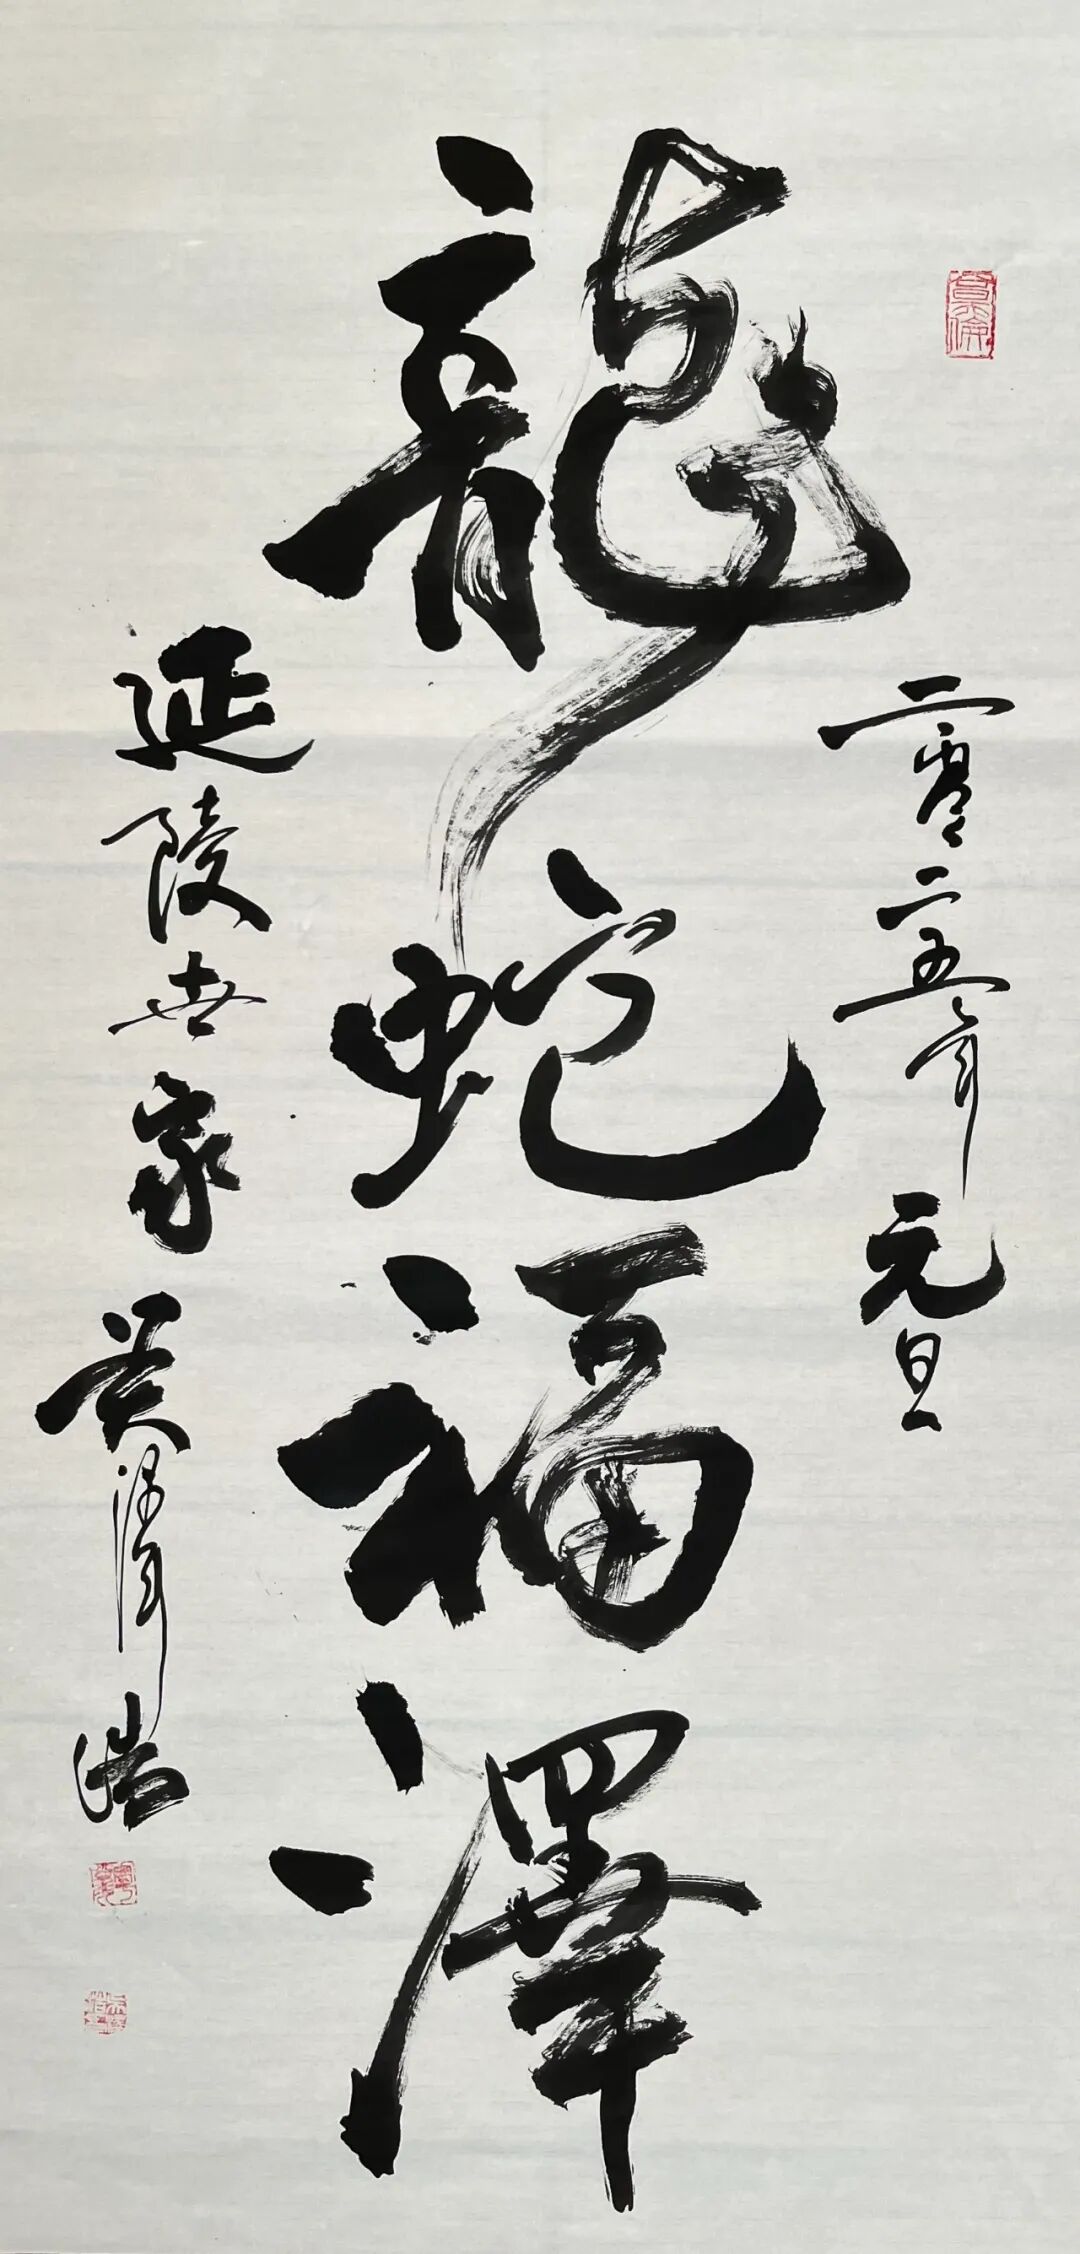 二零二五年元旦
龍蛇福澤
延陵世家吴澤浩